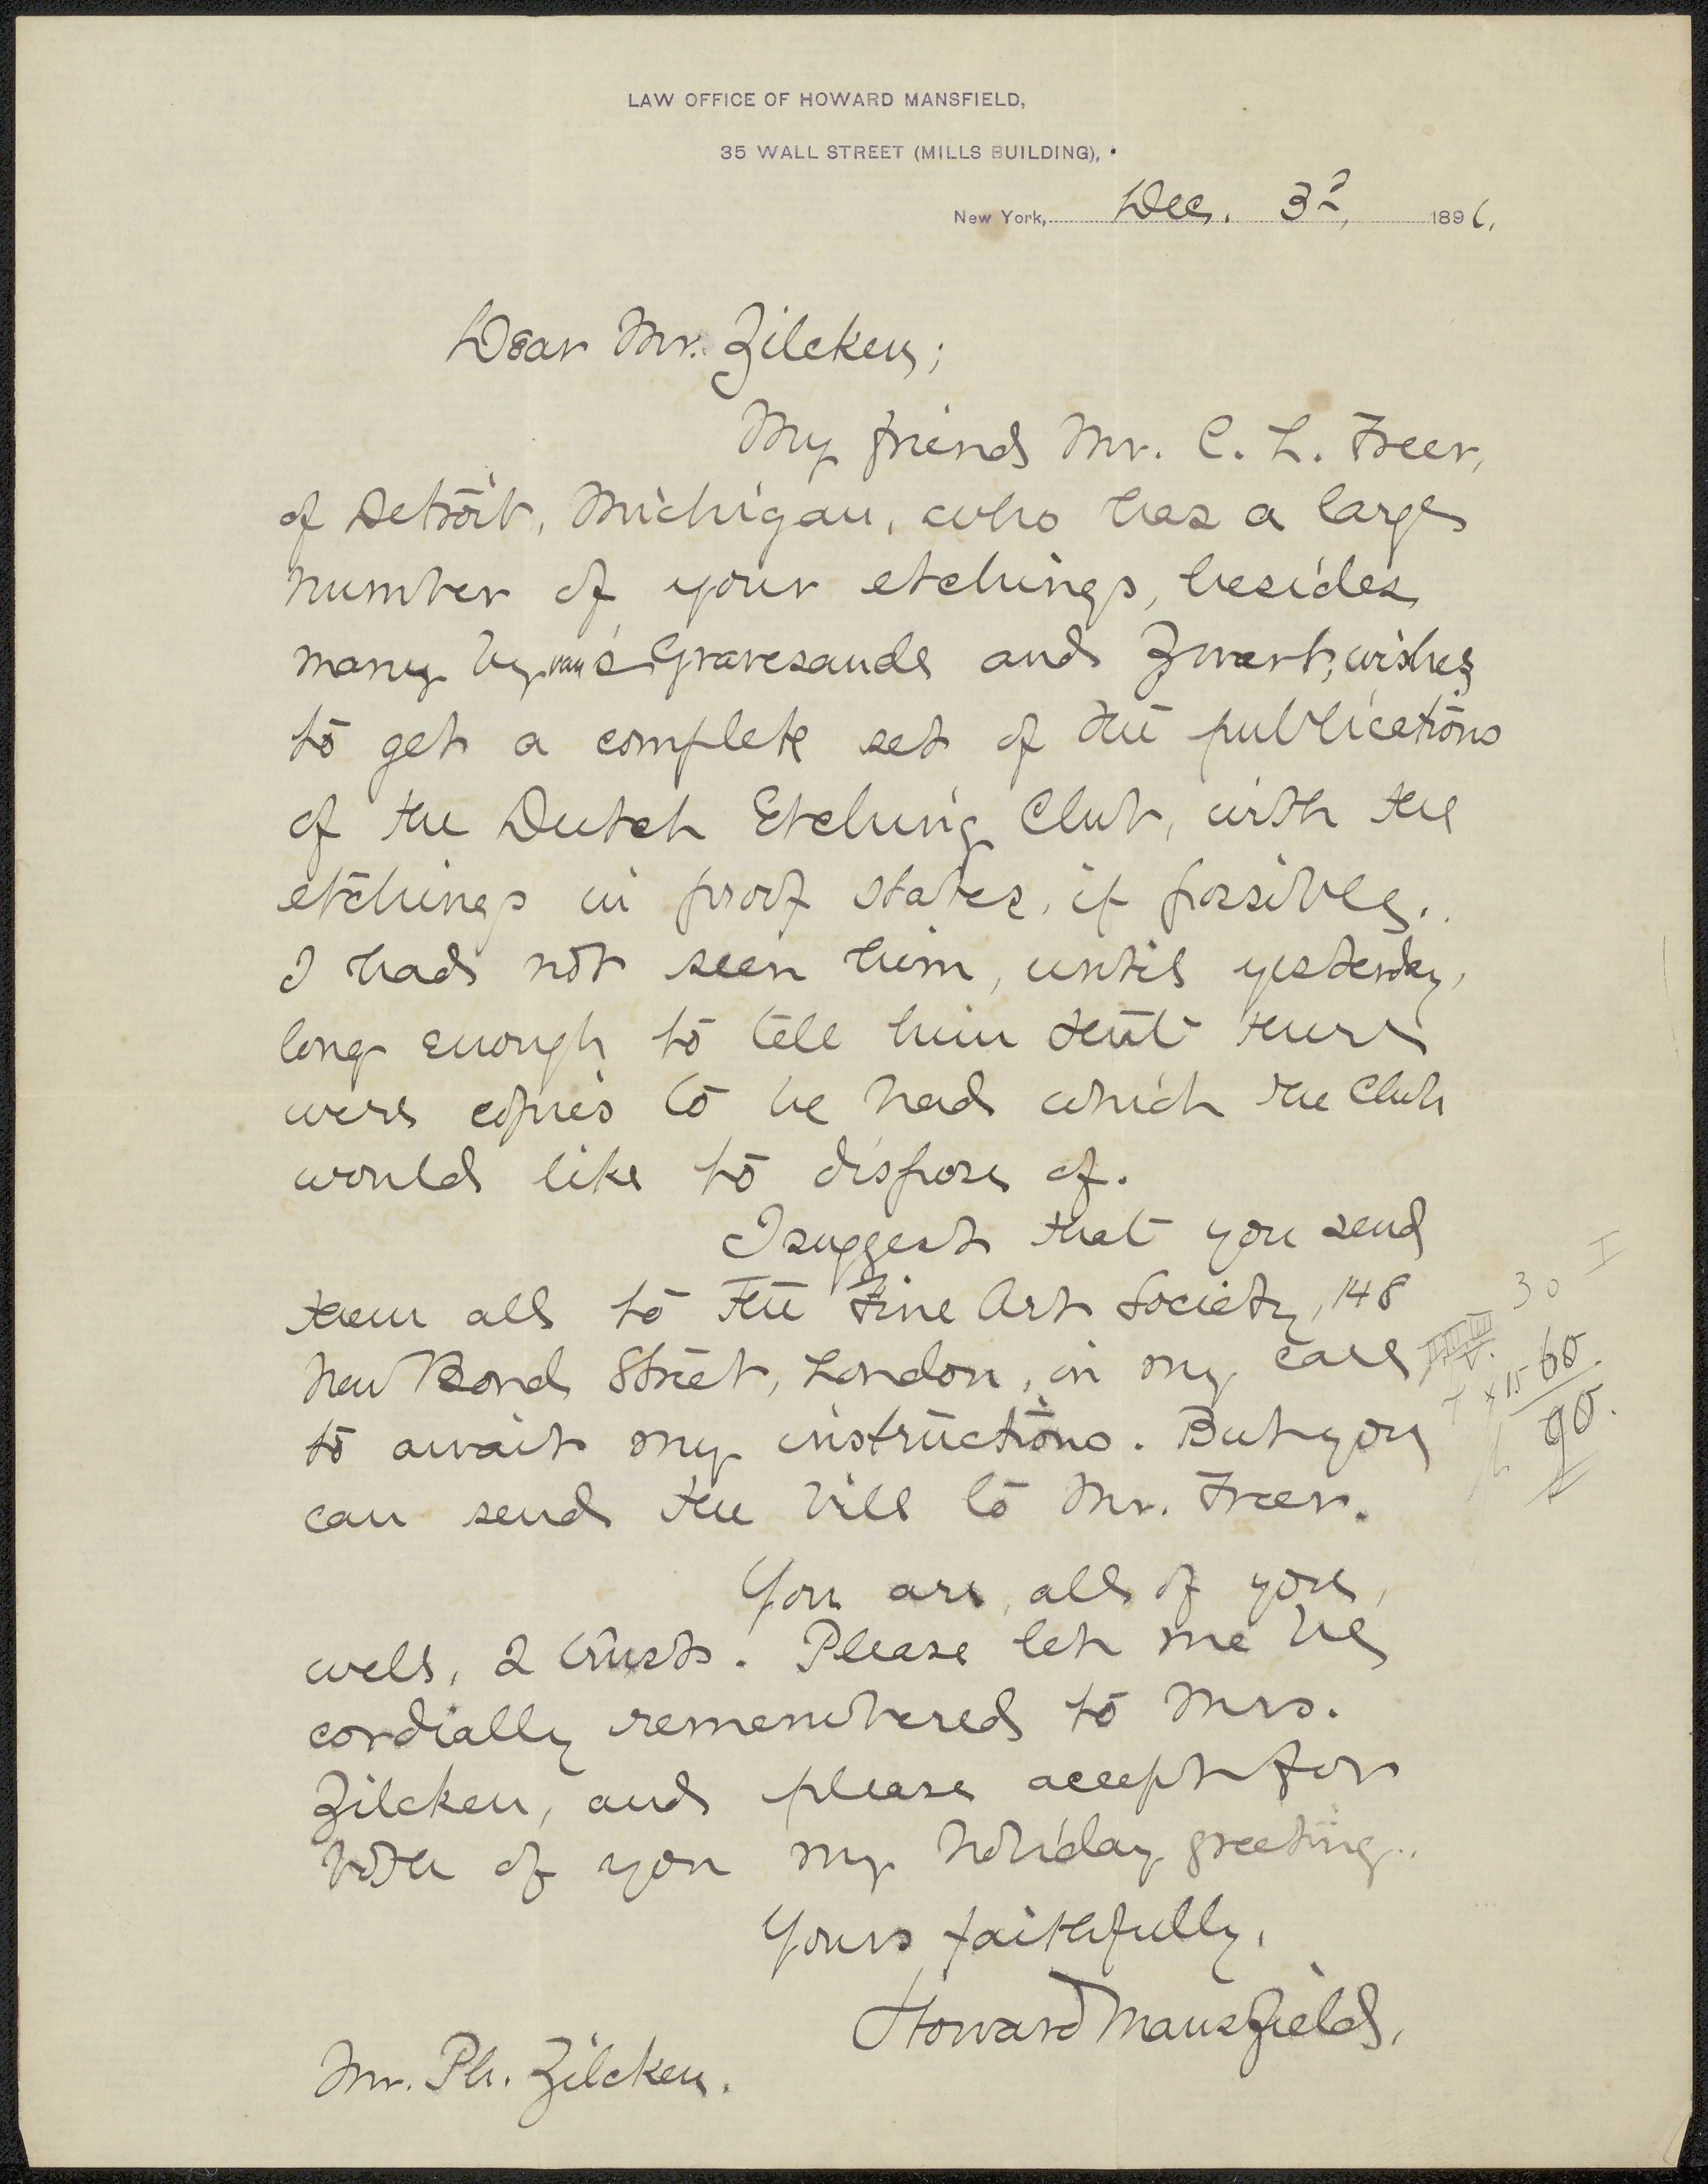 LAW OFFICE OF HOWARD MANSFIELD,
35 WALL STREET (MILLS BUILDING),
New York, Dec. 3d, 1896.
Dear Mr. Zilcken;
My friend Mr. C. L. Freer,
of Detroit, Michigan, who has a large
number of your etchings, besides
many by van 's Gravesande and Zwart, wishes
to get a complete set of the publications
of the Dutch Etching Club, with the
etchings in proof states, if possible.
I had not seen him, until yesterday,
long enough to tell him that there
were copies to be had which the Club
would like to dispose of.
I suggest that you send
them all to The Fine Art Society, 148
New Bond Street, London, in my care
to await my instructions. But you
can send the bill to Mr. Freer.
You are, all of you,
well, I trust. Please let me be
cordially remembered to Mrs.
Zilcken, and please accept for
both of you my holiday greeting.
Yours faithfully,
Howard Mansfield.
Mr. Ph. Zilcken.
30 I
60.
90.